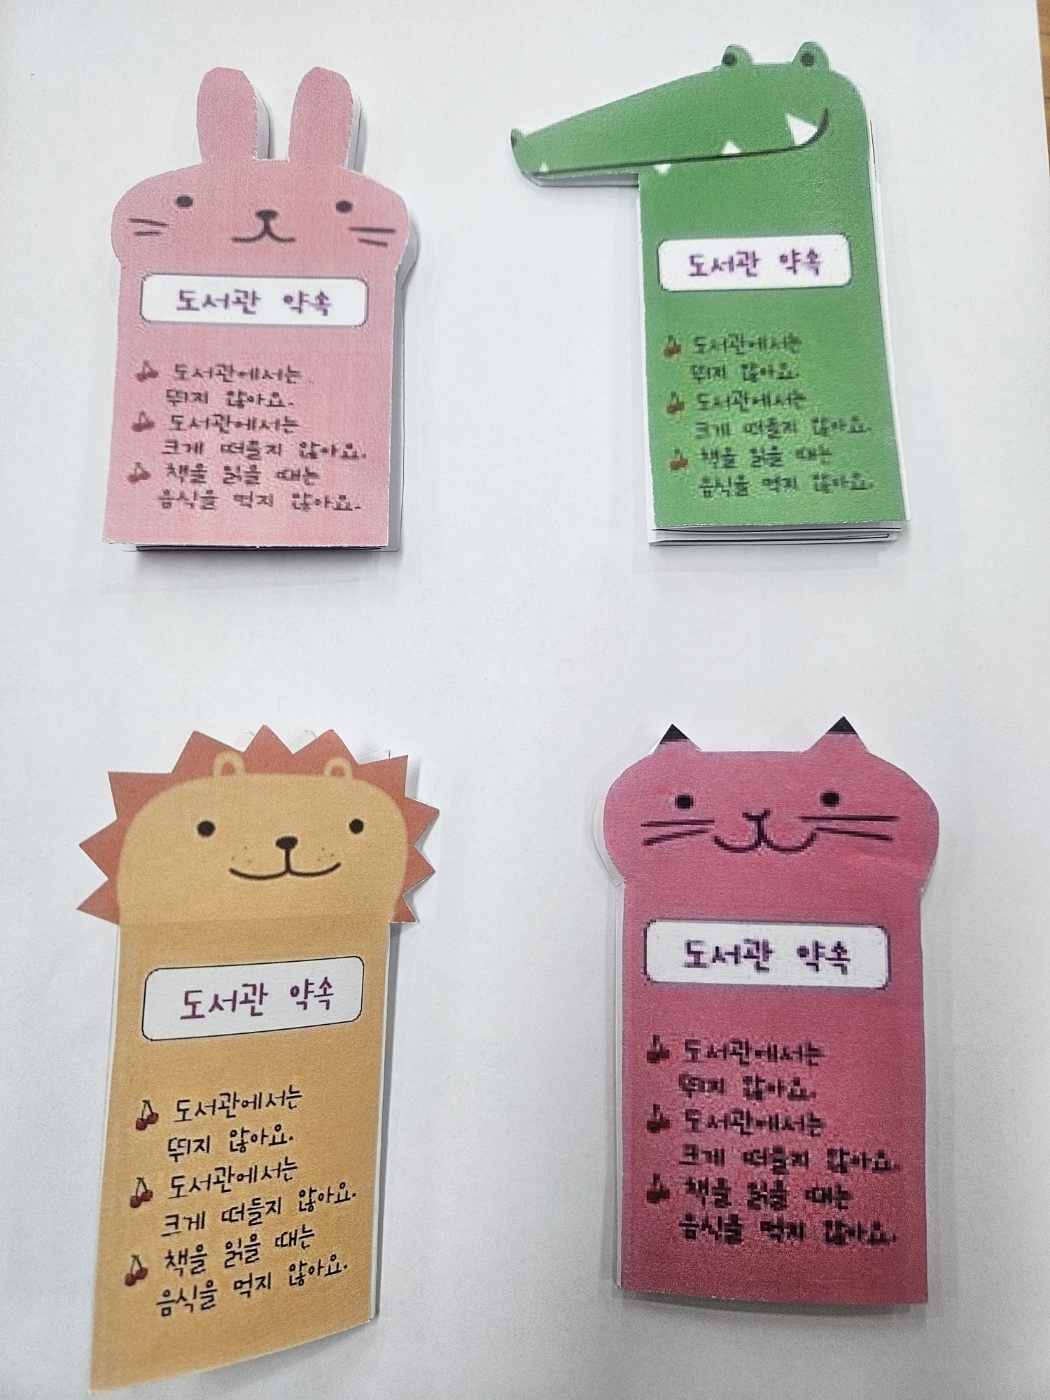 도서관 약속
도서관에서는
뛰지 않아요.
도서관에서는
크게 떠들지 않아요.
책을 읽을 때는
음식을 먹지 않아요.
도서관 약속
도서관에서는
뛰지 않아요.
도서관에서는
크게 떠들지 않아요.
책을 읽을 때는
음식을 먹지 않아요.
도서관 약속
도서관에서는
뛰지 않아요.
도서관에서는
크게 떠들지 않아요.
책을 읽을 때는
음식을 먹지 않아요.
도서관 약속
도서관에서는
뛰지 않아요.
도서관에서는
크게 떠들지 않아요.
책을 읽을 때는
음식을 먹지 않아요.